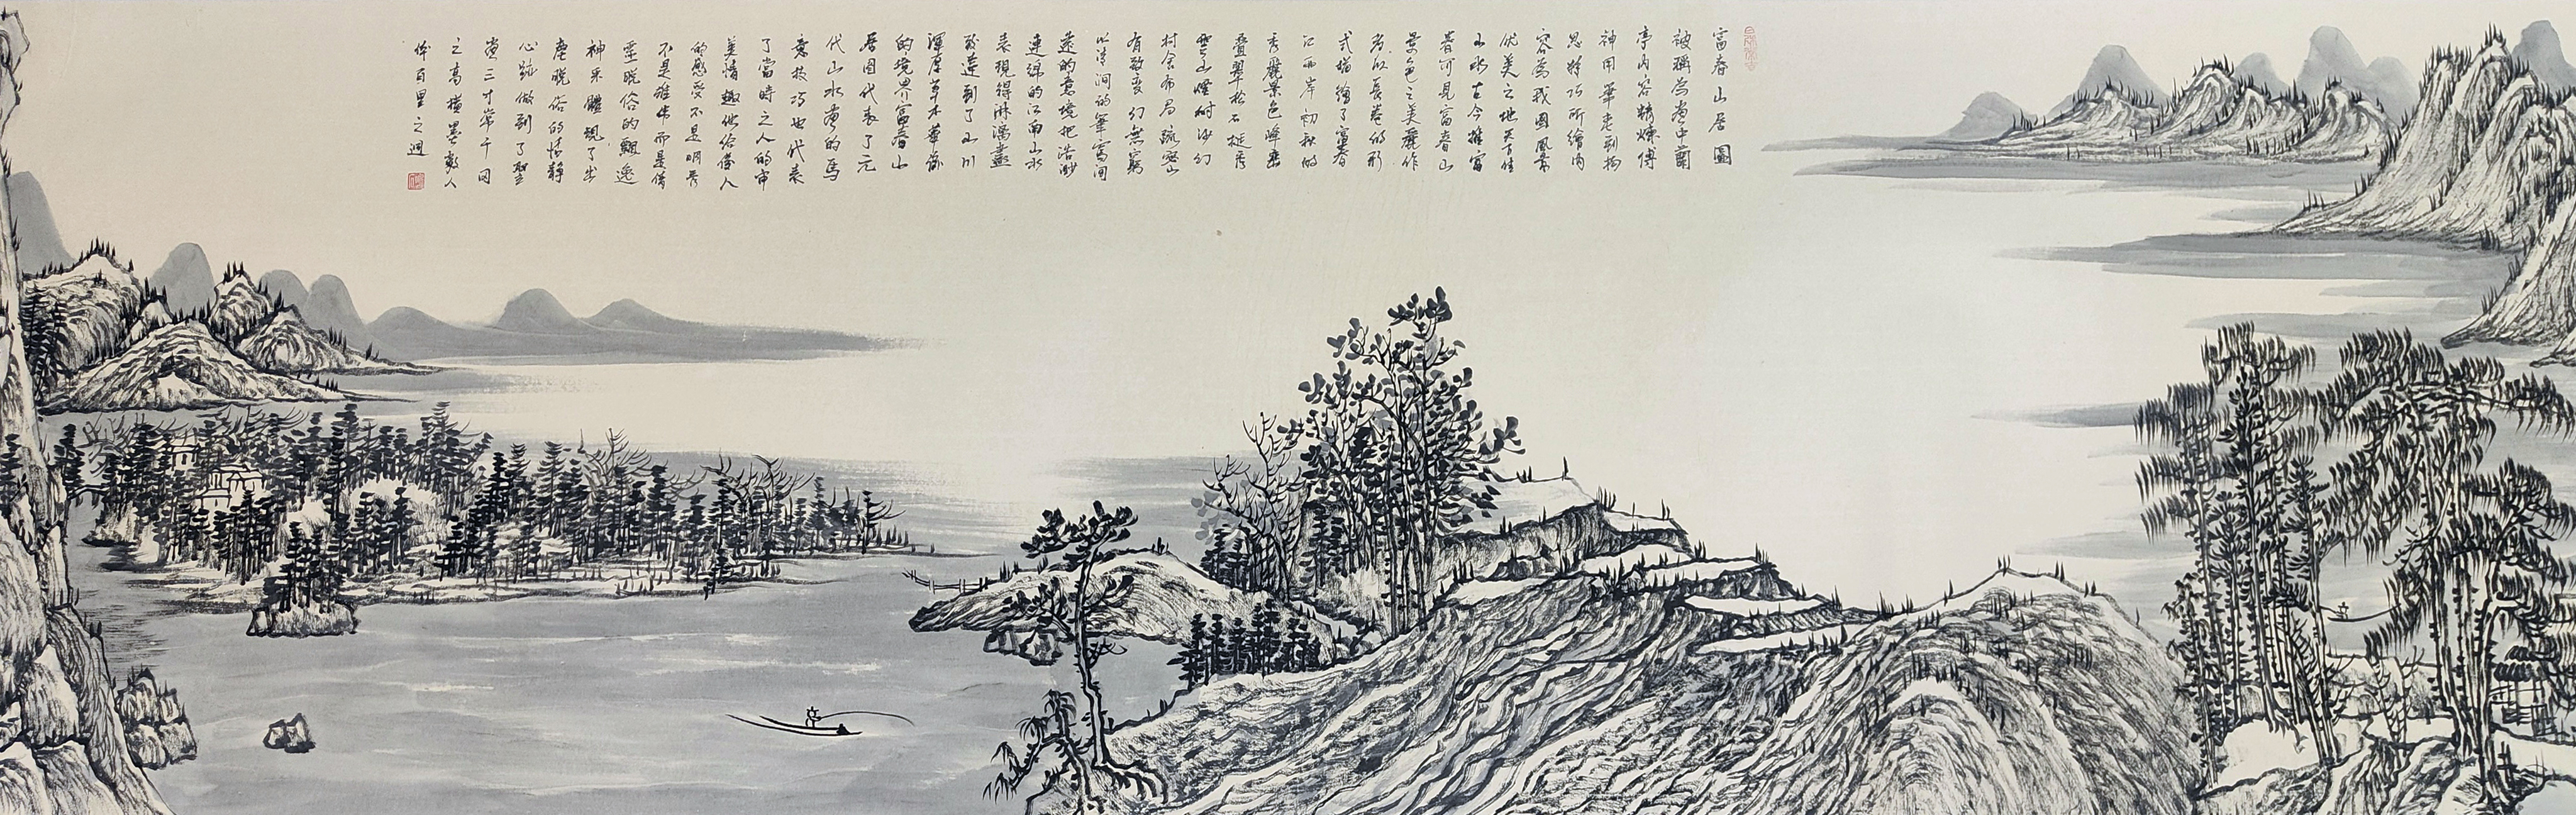 富春山居圖
被稱為畫中蘭
亭內容精煉傳
神用筆老到構
思精巧所繪內
容為我國風景
優美之地天下佳
山水古今推富
春可見富春山
景色之美麗作
者以長卷的形
式描繪了富春
江兩岸初秋的
秀麗景色峰巒
疊翠松石挺秀
雲山煙樹沙汀
村舍布局疏密
有致變幻無窮
以清潤的筆簡
遠的意境把浩渺
連綿的江南山水
表現得淋漓盡
致達到了山川
渾厚草木華滋
的境界富春山
居圖代表了元
代山水畫的
技巧也代表
了當時文人的審
美情趣他給人
的感受不是明秀
不是雄偉而是
脫俗的飄逸
神采體現了出
塵脫俗的情靜
心跡做到了
豎三寸當千仞
之高橫墨數
體百里之迥